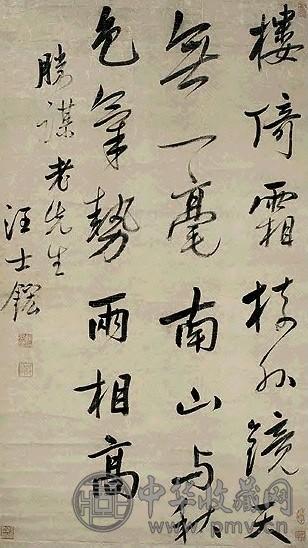 樓倚霜樹外鏡天
無一毫南山与秋
色氣勢兩相高
勝謀老先生
汪士鋐
中华收藏网
www.pmv.cn